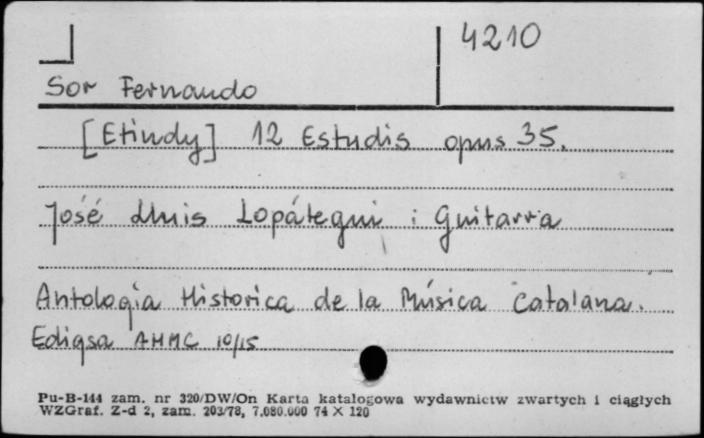 4210
Sor Fernando
[Etiudy] 12 Estudis opus 35.
José Lluis Lopátegui : Guitarra
Antologia Historica de la Música Catalana.
Edigsa AHMC 10/15
Pu-B-144 zam. nr 320/DW/On Karta katalogowa wydawnictw zwartych i ciągłych
WZGraf. Z-d 2, zam. 203/78, 7.080.000 74 × 120